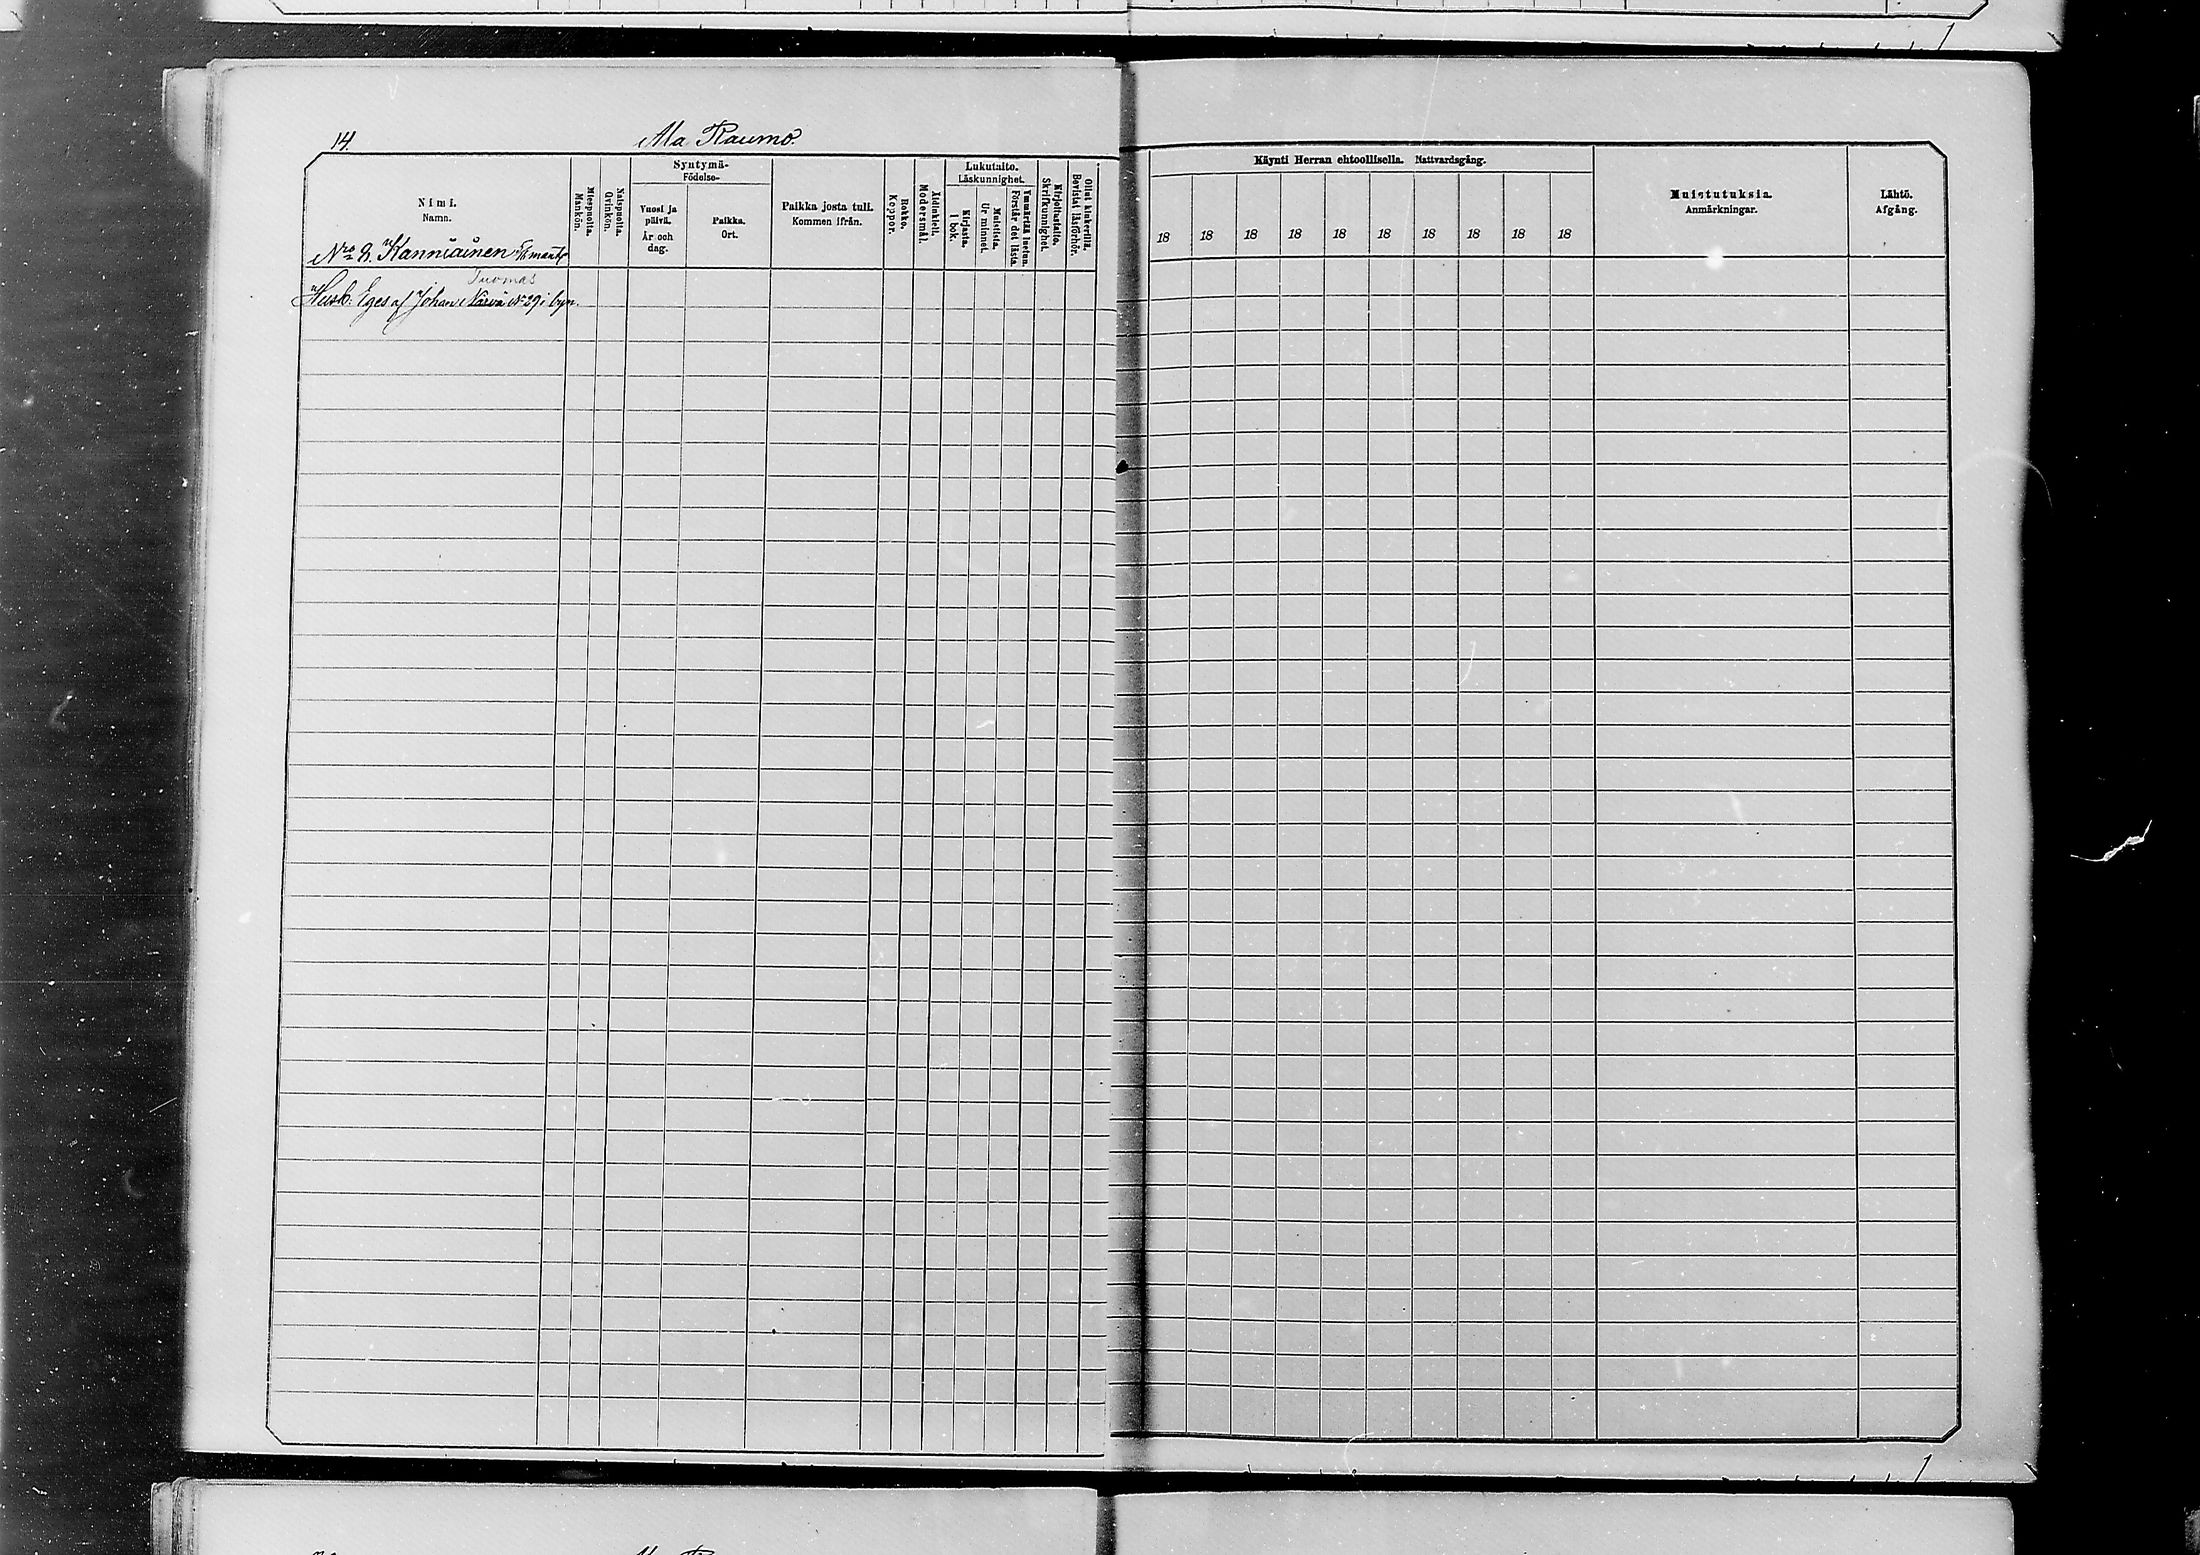 14.
Ala Raumo.
Nimi.
Namn.
Miespuolia.
Mankön.
Naispuolia.
Qvinkön.
Syntymä-
Födelse-
Vuosi ja
päivä.
År och
dag.
Paikka.
Ort.
Paikka josta tuli.
Kommen ifrån.
Rokko.
Koppor.
Äidinkieli.
Modersmål.
Lukutaito.
Läskunnighet.
Kirjasta.
I bok.
Muistista.
Ur minnet.
Ymmärtää luetun.
Förstår det lästa.
Kirjoitustaito.
Skrifkunnighet.
Ollut kinkerillä.
Bevistat läsförhör.
Käynti Herran ehtoollisella. Nattvardsgång.
18 18 18 18 18 18 18 18 18 18
Muistutuksia.
Anmärkningar.
Lähtö.
Afgång.
Nro 2. Kanniainen
Tuomas
Husb: Eges af Johan Varvä No 29 i byn.